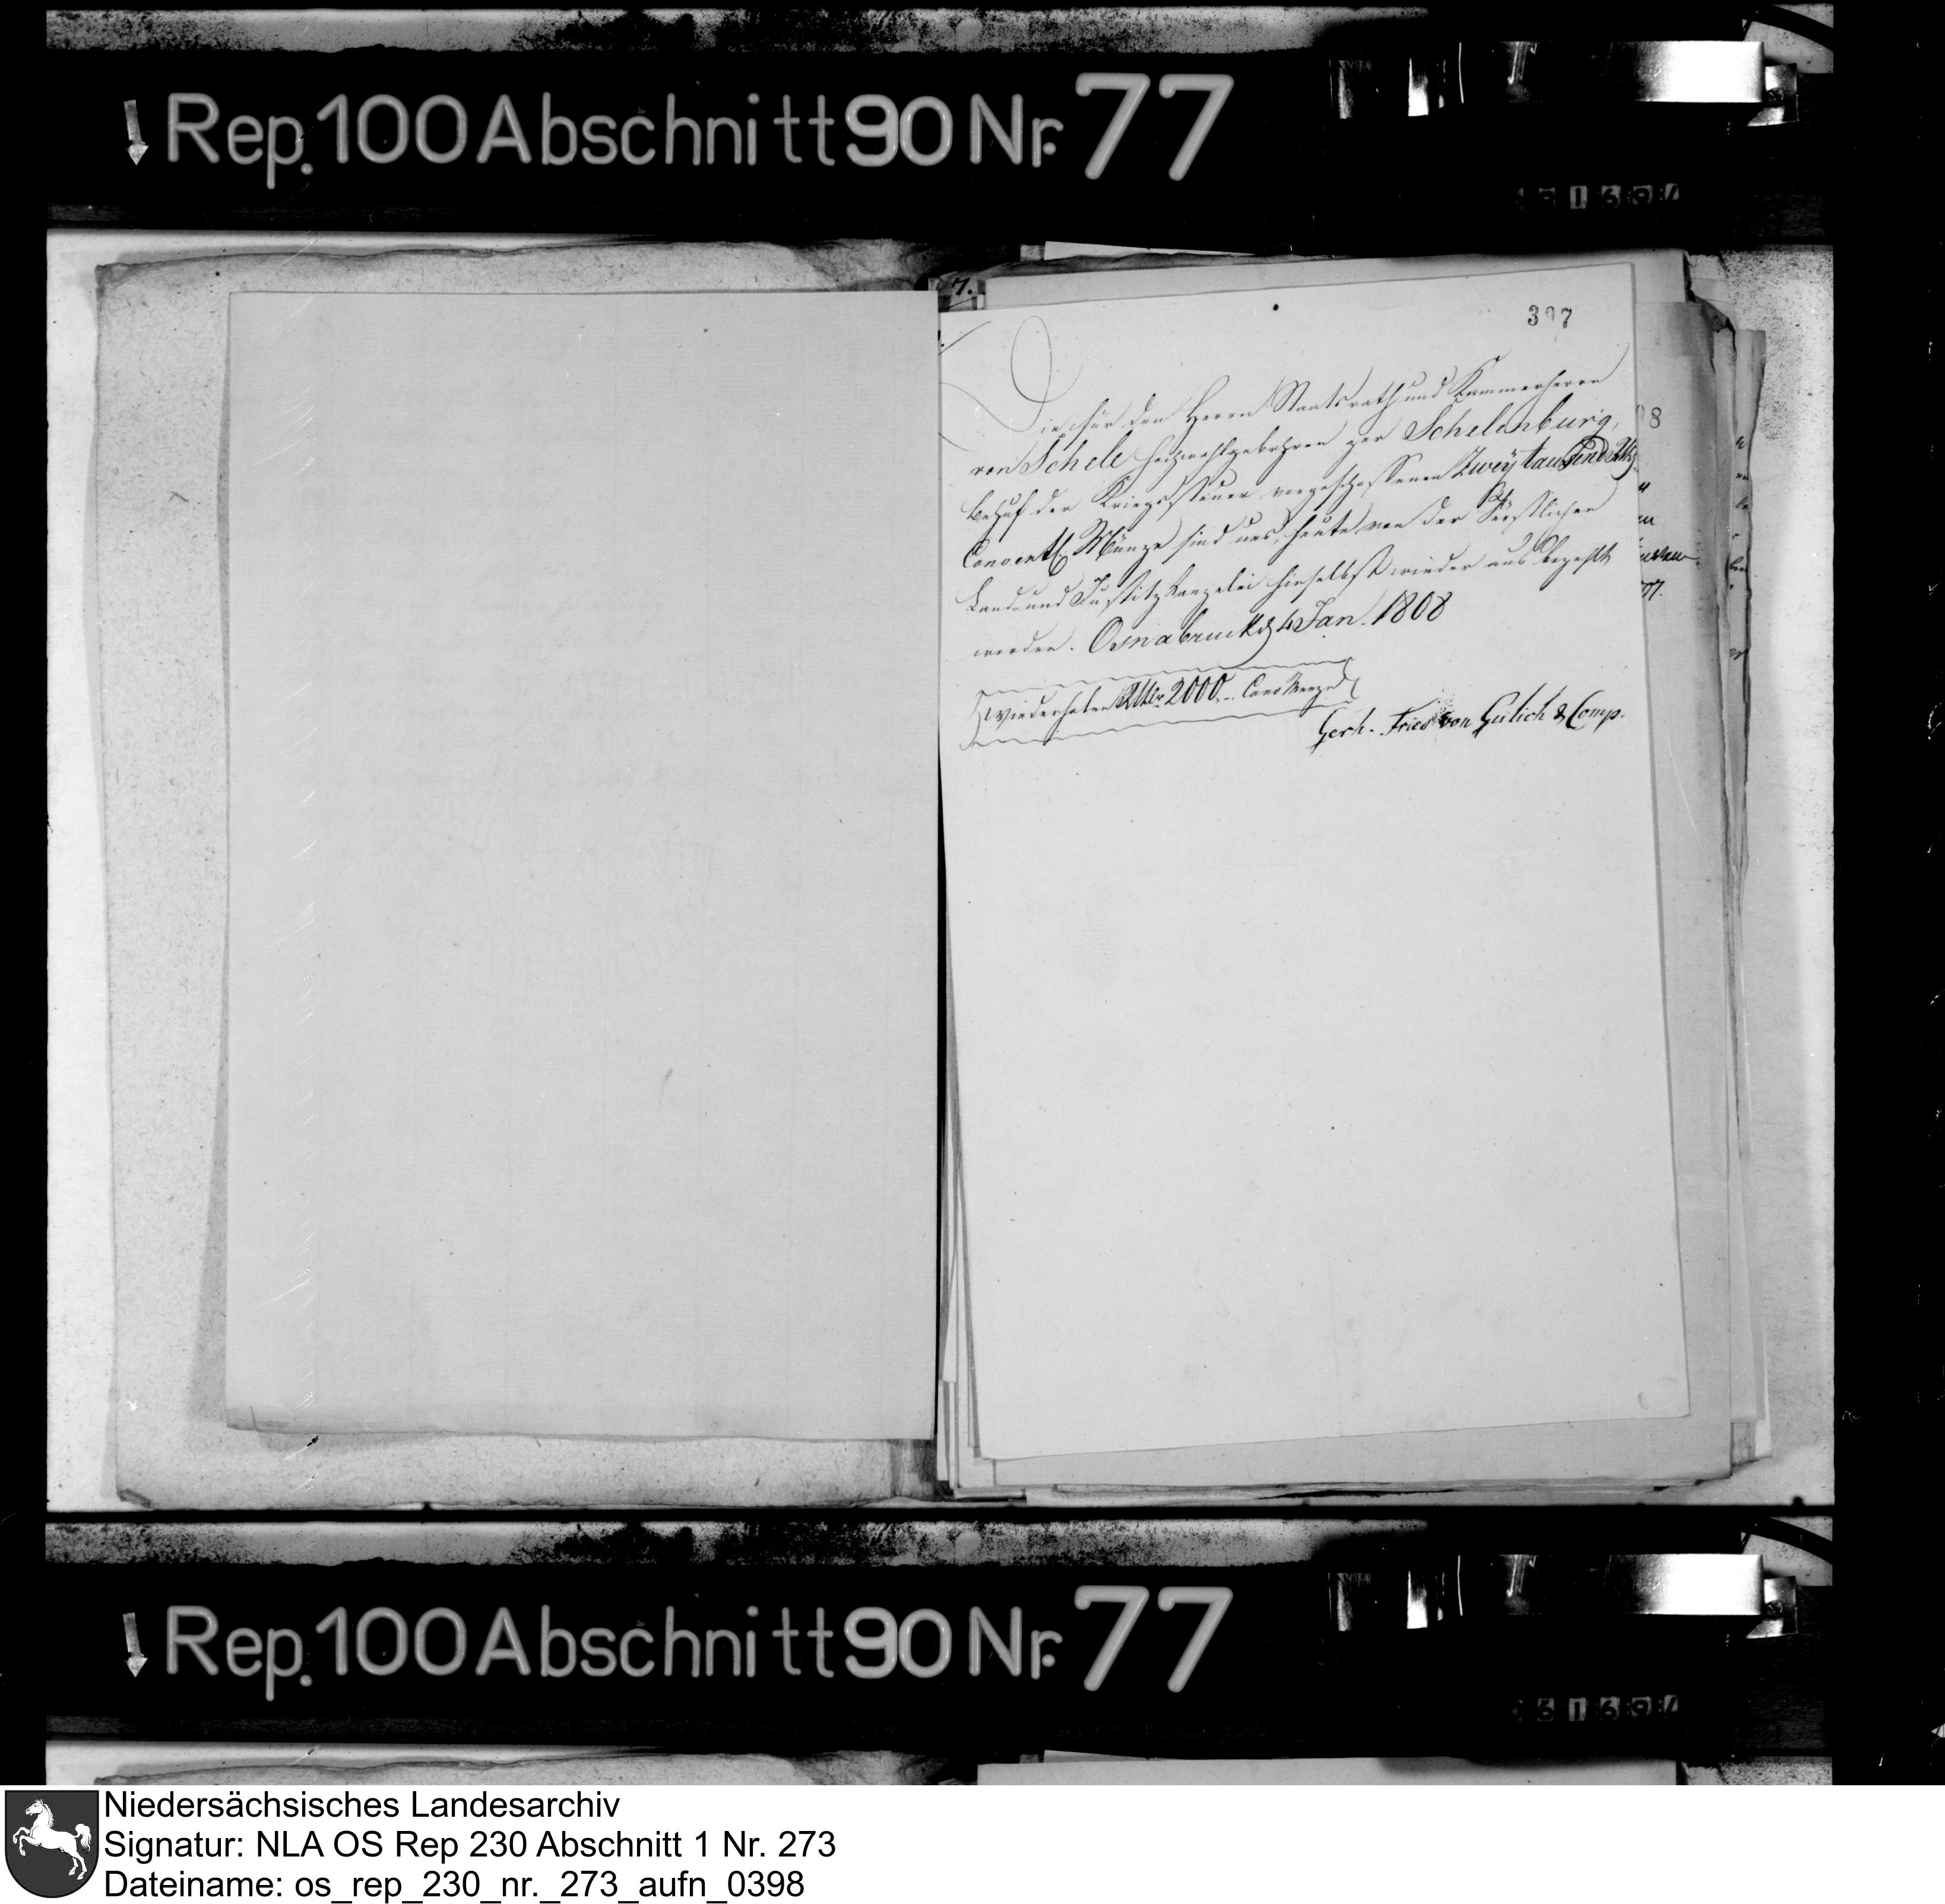 Rep. 100 Abschnitt 90 Nr. 77
7.
307
Die für den Herrn Staatsrath und Kammerherrn
von Schele hochwohlgebohren zur Schelenburg,
behuf der Kriegssteuer vorgeschossenen Zwey tausend Rthlr
Convent. Münze sind uns, heute von der Fürstlichen
Land- und Justitz Canzelei hieselbst wieder aus bezahlt
worden. Osnabruck d 4 Jan. 1808
Wiederholen Rthlr 2000,- Conv Münze
Gerh. Fried von Gülich & Comp.
Rep. 100 Abschnitt 90 Nr. 77
Niedersächsisches Landesarchiv
Signatur: NLA OS Rep 230 Abschnitt 1 Nr. 273
Dateiname: os_rep_230_nr._273_aufn_0398